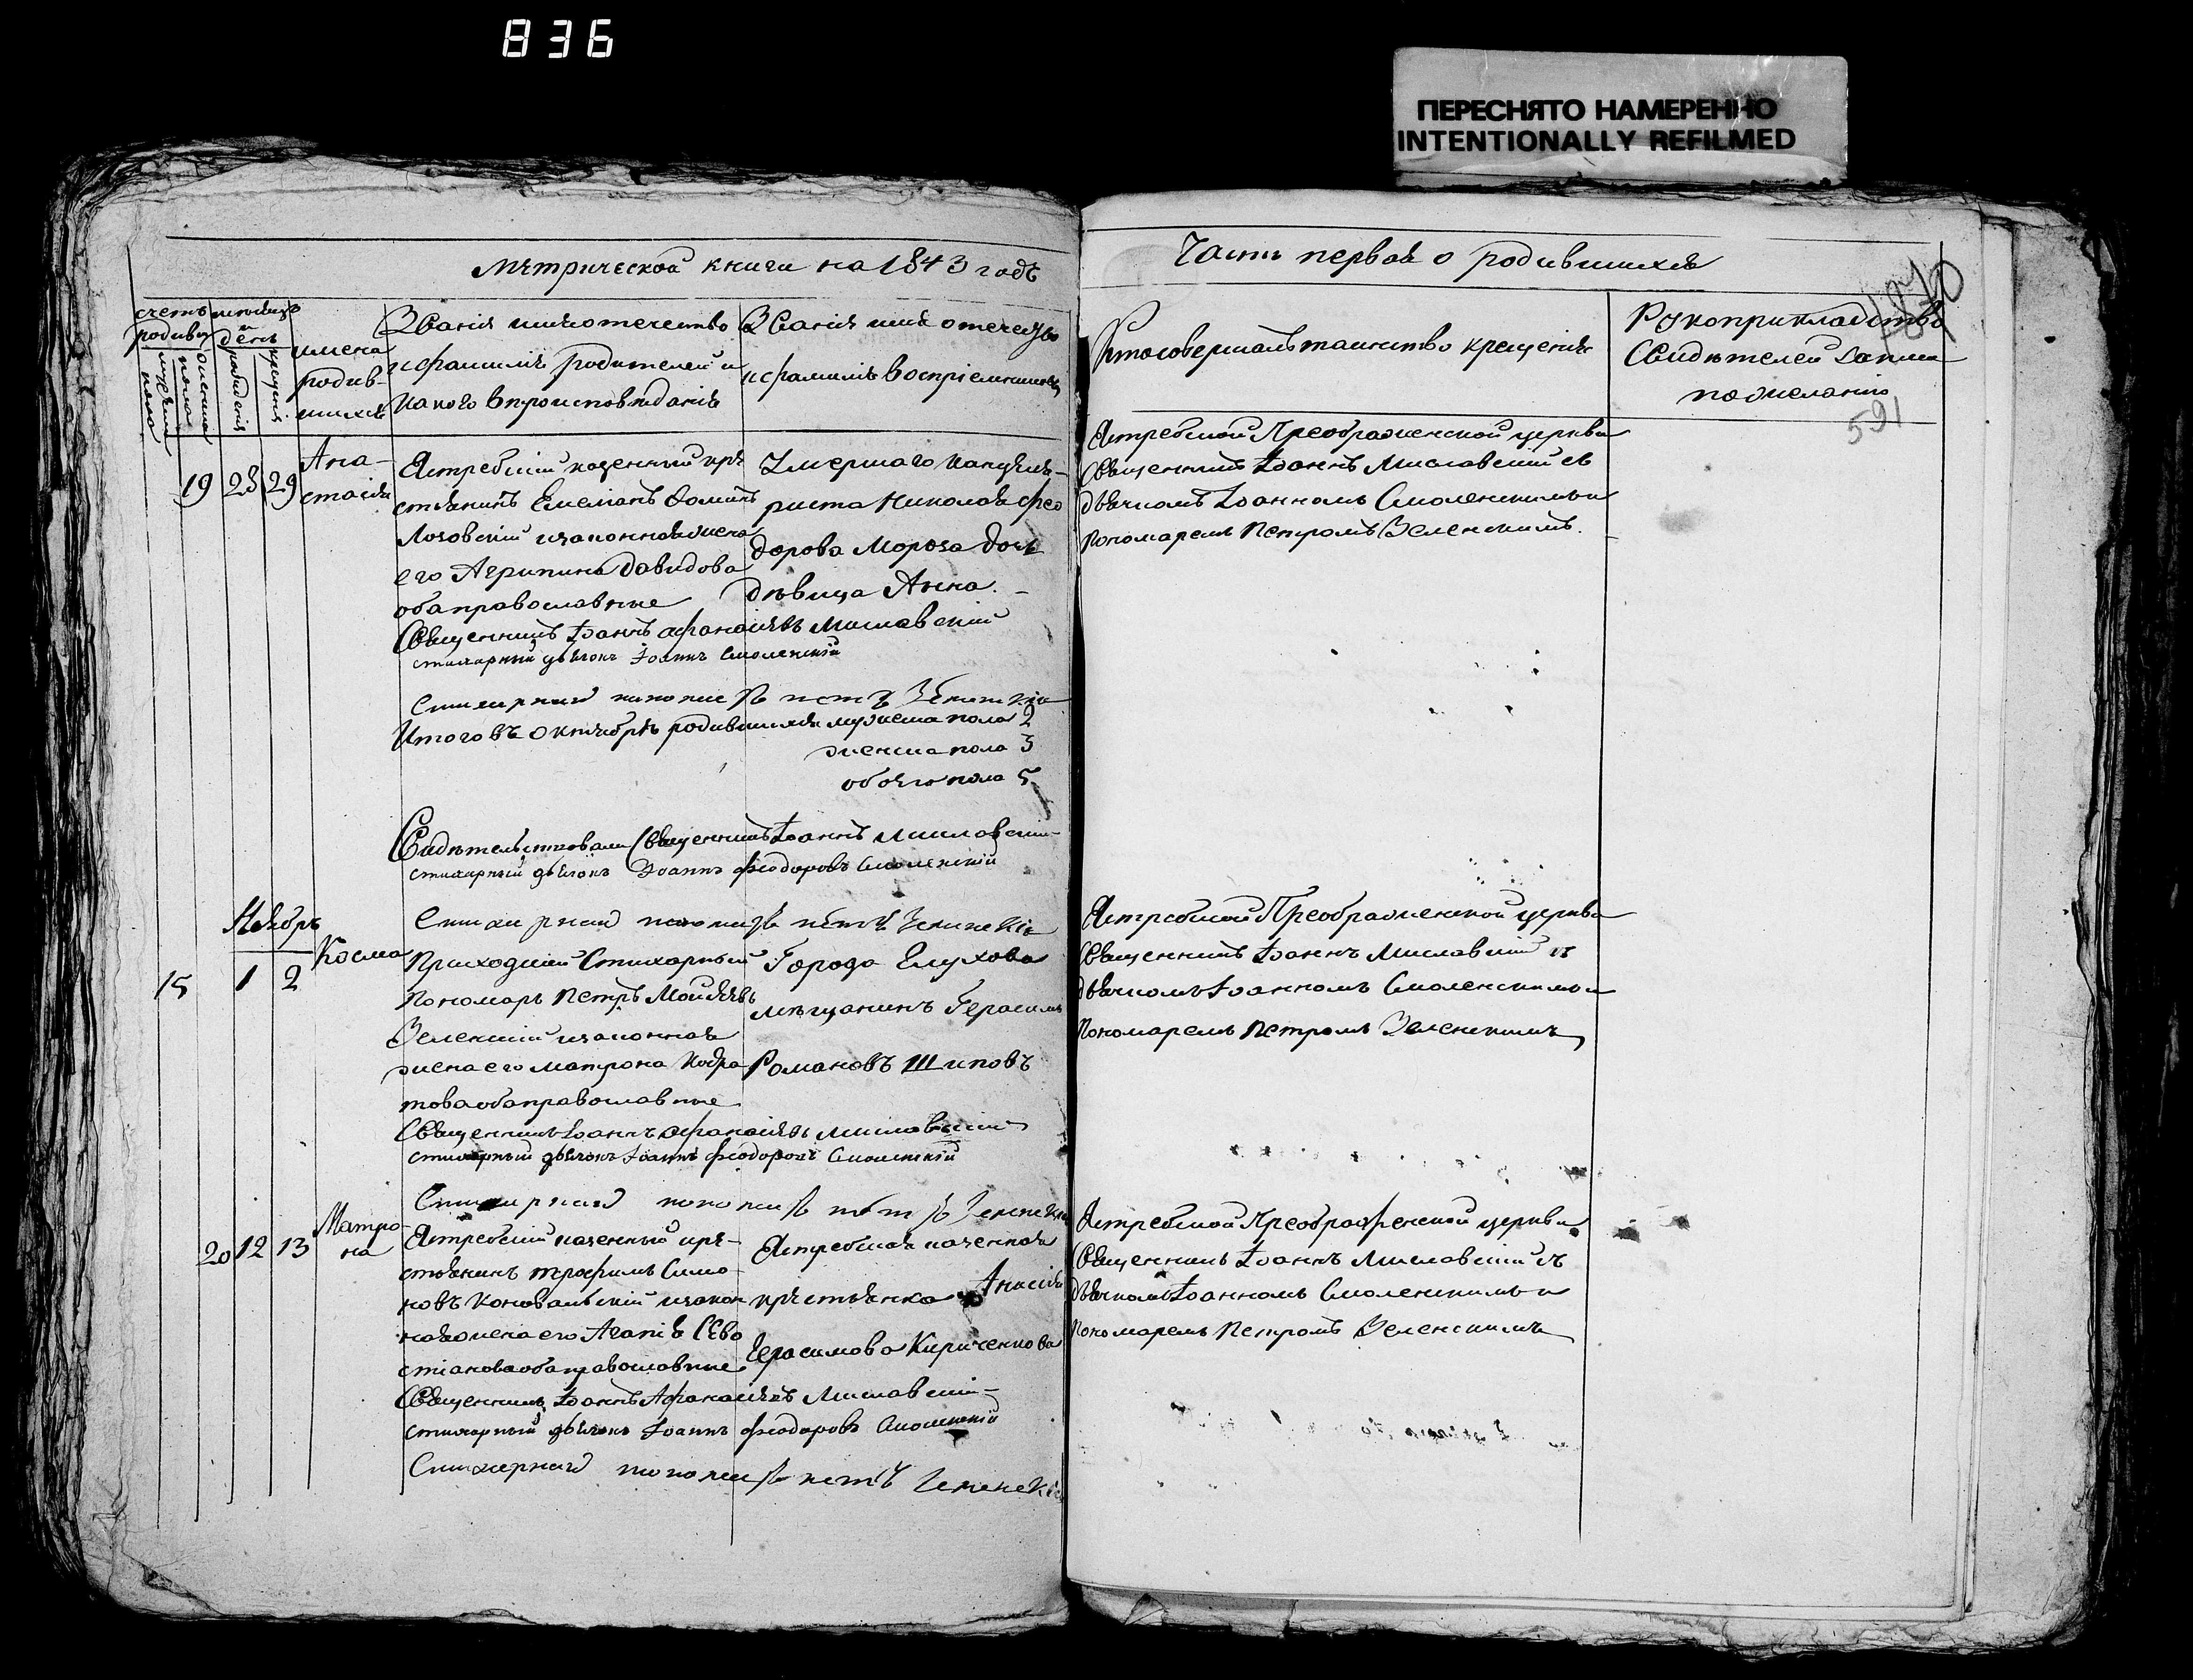 836
ПЕРЕСНЯТО НАМЕРЕННО
INTENTIONALLY REFILMED
Мѣтрической книги на 1843 годъ
счетъ родивш
мужеска пола
женска пола
мѣсяцъ и день
рожденія
крещенія
имена
родив-
шихся
Званія имя отечество
и фамилѣ родителей и
какого вѣроисповѣданія
Званія имя отечество
и фамилѣ воспріемниковъ
19 28 29
Ана-
стасія
Ястребскій казенный кре
стянинъ Емеліанъ Фоминъ
Лозовскій изаконная жена
его Агрипина Давидова
оба православные
Умершаго канцеля-
риста Николая Фео
дорова Мороза дочь
дѣвица Анна.
Священникъ Іоаннъ Афанасіевъ Миславскій
стихарный дьячокъ Іоаннъ Смоленскій
Стихарный пономарь Петръ Зеленскій
Итого въ Октябрѣ родившихся мужеска пола 2
женска пола 3
обоего пола 5
Свидѣтельствовали Священникъ Іоаннъ Миславскій
стихарный дьячокъ Іоаннъ Феодоровъ Смоленскій
Стихарный пономарь Петръ Зеленскій
Ноябрь
15 1 2
Косма
Приходскій Стихарный
Пономарь Петръ Моисѣевъ
Зеленскій изаконная
жена его Матрона Кодра
това оба православные
Города Глухова
мѣщанинъ Герасимъ
Романовъ Шиповъ
Священникъ Іоаннъ Афанасіевъ Миславскій
стихарный дьячокъ Іоаннъ Феодоровъ Смоленскій
Стихарный пономарь Петръ Зеленскій
20 12 13
Матро-
на
Ястребскій казенный кре-
стянинъ Трофимъ Симо
новъ Коновальскій изакон
ная жена его Агапія Сева
стіанова оба православные
Ястребская казенная
крестянка Анасія
Герасимова Кириченкова
Священникъ Іоаннъ Афанасіевъ Миславскій
стихарный дьячокъ Іоаннъ Феодоровъ Смоленскій
Стихарный пономарь Петръ Зеленскій
Часть первая о родившихся
Кто совершалъ таинство крещенія
Рукоприкладство
Свидѣтелей записи
по желанію
591
Ястребской Преображенской церкви
Священникъ Іоаннъ Миславскій съ
дьячкомъ Іоанномъ Смоленскимъ и
Пономаремъ Петромъ Зеленскимъ.
Ястребской Преображенской церкви
Священникъ Іоаннъ Миславскій съ
дьячкомъ Іоанномъ Смоленскимъ и
Пономаремъ Петромъ Зеленскимъ
Ястребской Преображенской церкви
Священникъ Іоаннъ Миславскій съ
дьячкомъ Іоанномъ Смоленскимъ и
Пономаремъ Петромъ Зеленскимъ